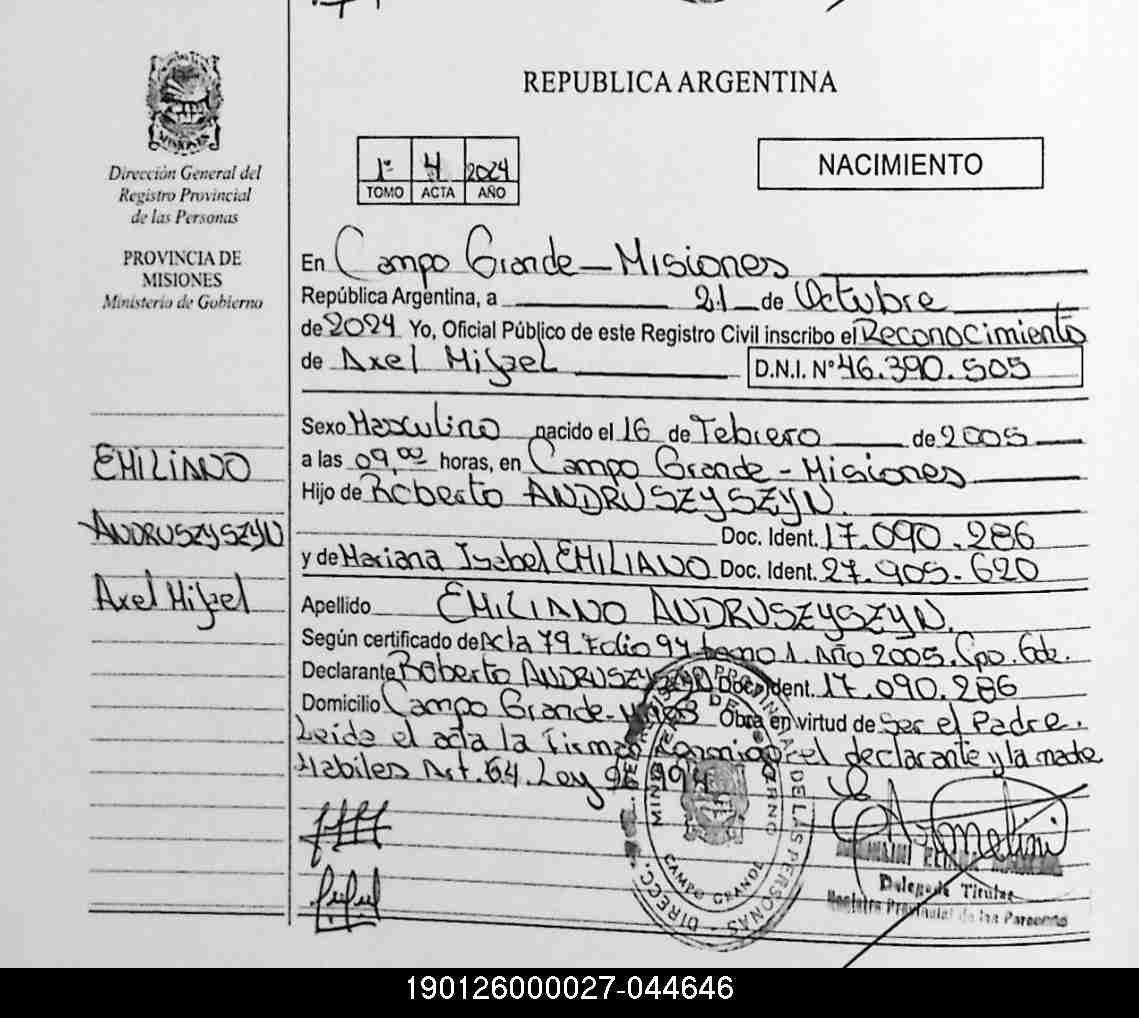 REPUBLICA ARGENTINA
MISIONES
Dirección General del
Registro Provincial
de las Personas
PROVINCIA DE
MISIONES
Ministerio de Gobierno
1º 4 2024
TOMO ACTA AÑO
NACIMIENTO
En Campo Grande - Misiones
República Argentina, a 21 de Octubre
de 2024 Yo, Oficial Público de este Registro Civil inscribo el Reconocimiento
de Axel Misael D.N.I. Nº 46.390.505
Sexo Masculino nacido el 16 de Febrero de 2005
a las 09,00 horas, en Campo Grande - Misiones
Hijo de Roberto ANDRUSZYSZYN.
Doc. Ident. 17.090.286
y de Mariana Isabel EMILIANO Doc. Ident. 27.905.620
Apellido EMILIANO ANDRUSZYSZYN.
Según certificado de Acta 79 Folio 94 tomo 1. Año 2005. Cpo. Gde.
Declarante Roberto ANDRUSZYSZYN Doc. Ident. 17.090.286
Domicilio Campo Grande - Mnes Obra en virtud de Ser el Padre.
Leída el acta la Firman Conmigo el declarante y la madre
Habiles Art. 64. Ley 26.994
EMILIANO
ANDRUSZYSZYN
Axel Misael
CAMPO GRANDE
DE LAS PERSONAS
Delegada Titular
Registro Provincial de las Personas
190126000027-044646